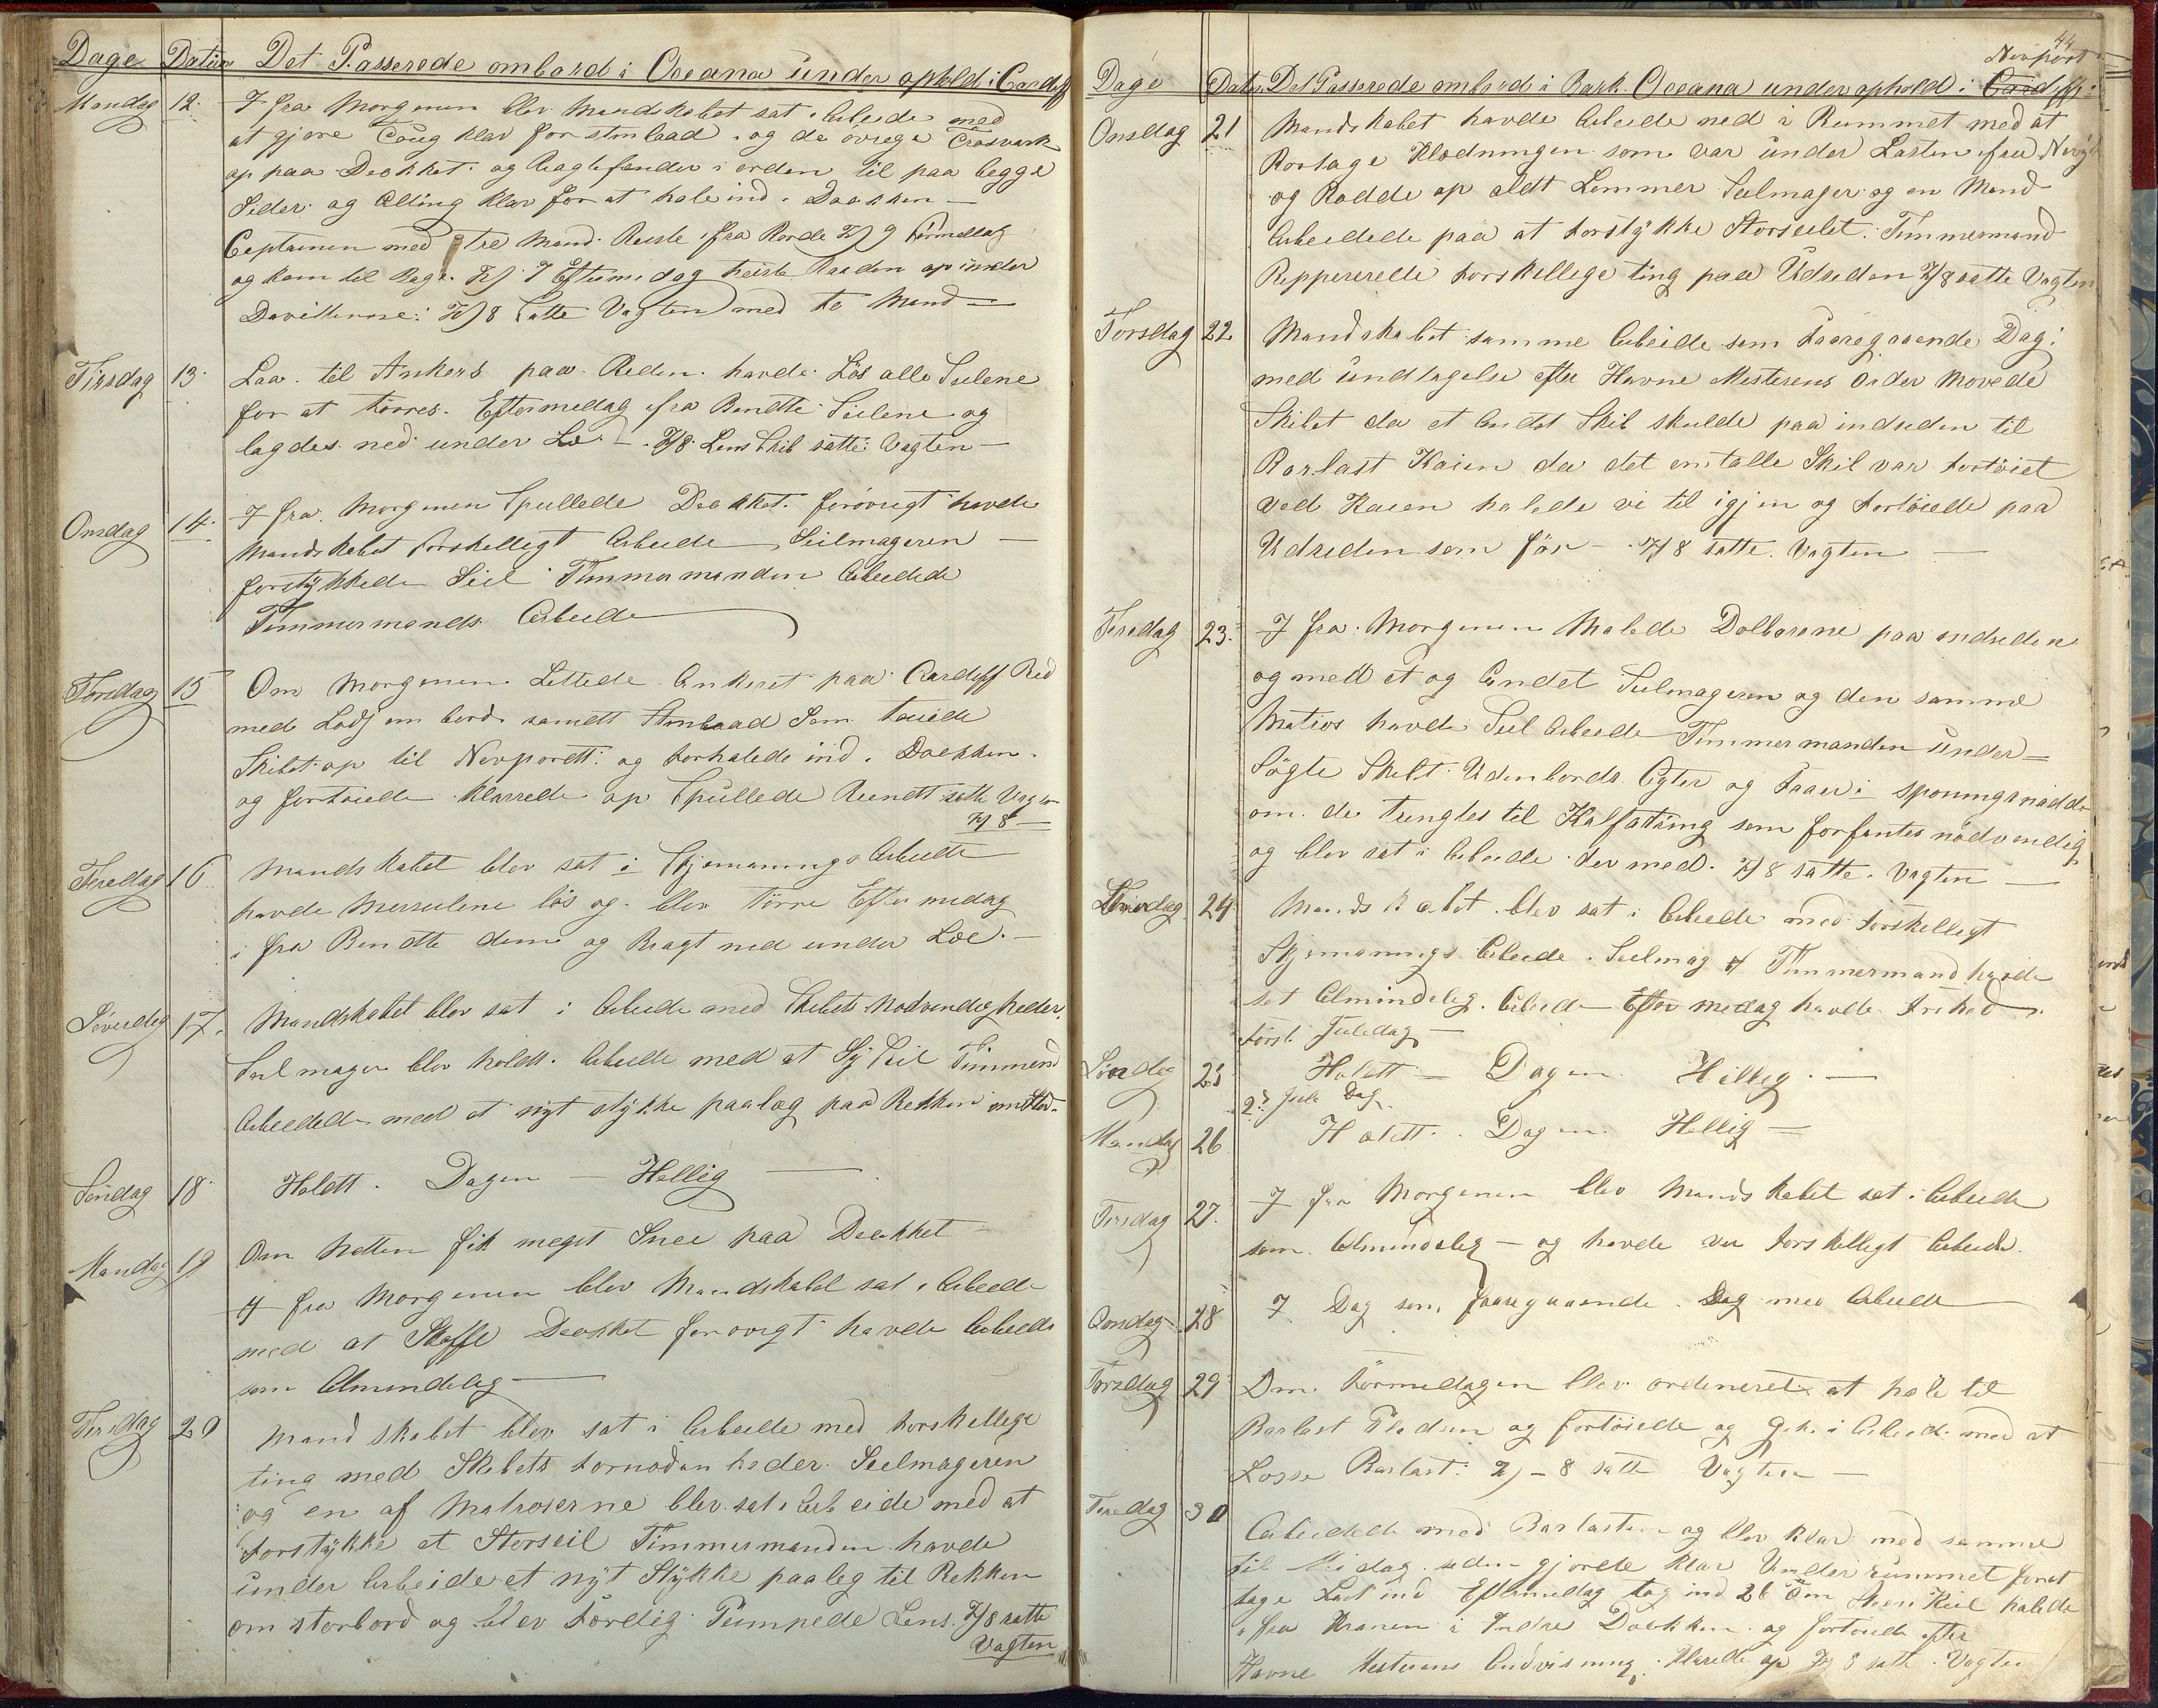 Dage Datum Det Passerede ombord i Oceana under ophold i Cardiff
Mandag 12. I fra Morgenen blev Mandskabet sat i Arbeide med
at gjøre Toug klar for stimbaad og de øvrige
op paa Dækket og i orden til paa begge
Sider og Alting klar for at hale ind i Dokken —
Captainen med tre Mand Reiste ifra Borde Kl 9 Formedag
og kom til Bage Kl 7 Eftermedag heiste Baaden op under
Daviterne: Kl 8 satte Vagten med to Mand —
Tirsdag 13. Laa til Ankers paa Reden havde Løs alle Seilene
for at tørres. Eftermedag ifra Bendte Seilene og
lagdes ned under Lo — Kl 8 Lens Skib satte Vagten —
Onsdag 14. I fra Morgenen Spullede Dækket forøvrigt havde
Mandskabet forskelligt Arbeide Seilmageren —
forstykkede Seil Timmermanden Arbeidede
Timmermands Arbeide
Torsdag 15 Om Morgenen Lettede Ankeret paa Cardiff Red
med Lods om bord samdt Stimbaad som touede
Skibet op til Newportt og forhalede ind i Dokken
og fortøiede klarede op Spullede Rundt satte Vagten
Kl 8 —
Fredag 16 Mandskabet blev sat i Skjemannings Arbeide
havde Merseilene løs og blev tørre Efter medag
i fra Bendte dem og Bragt ned under Loe. —
Løverdag 17. Mandskabet blev sat i Arbeide med Skibets Nødvendigheder.
Seilmager blev holdt Arbeide med at Sy Seil Timmermand
Arbeidede med et nyt stykke paalæg paa Rekken
Søndag 18. Holdtt. Dagen — Hellig —
Mandag 19 Om Natten fik meget Snee paa Dækket —
I fra Morgenen blev Mandskabet sat i Arbeide
med at Skoffle Dækket forøvrigt havde Arbeide
som Almindelig —
Tirsdag 20 Mandskabet blev sat i Arbeide med forskellige
ting med Skibets fornødenheder. Seilmageren
og en af Matroserne blev sat i Arbeide med at
forstykke et Storseil Timmermanden havde
under Arbeide et nyt Stykke paaleg til Rekken
om storbord og blev færdig Pumpede Lens. Kl 8 satte
Vagten
44
Newport
Dage Datum Det Passerede ombord i Bark Oceana under ophold i Cardiff:
Onsdag 21 Mandskabet havde Arbeide ned i Rummet med at
Bortage Klædningen som var under Lasten fra
og Rødde op aldt Lemmer Seilmager og en Mand
Arbeidede paa at forstykke Storseilet. Timmermand
Reppererede forskellige ting paa Udsiden Kl 8 satte Vagten
Torsdag 22 Mandskabet samme Arbeide som foregaaende Dag:
med undtagelse efter Havne Mesterens Order Movede
Skibet da et Andet Skib skulde paa indsiden til
Barlast Kaien da det omtalte Skib var fortøiet
ved Kaien halede vi til igjen og fortøiede paa
Udsiden som før — Kl 8 satte Vagten —
Fredag 23. I fra Morgenen Malede Dolborene paa indsiden
og medt et og Andet Seilmageren og den samme
Matros havde Seil Arbeide Timmermanden under=
Søgte Skibt Udenbords Agter og Faaer i
om de trengtes til Kalfatring som forfantes nødvendig
og blev sat i Arbeide der med. Kl 8 satte Vagten —
Løverdag 24 Mandskabet blev sat i Arbeide med forskelligt
Skjemannings Arbeide. Seilmag & Timmermand havde
set Almindelig Arbeide Efter medag havde Frihed
Første Juledag —
Søndag 25 Holdtt — Dagen Hellig. —
2den Jule Dag
Mandag 26 Holdtt. Dagen. Hellig —
Tirsdag 27. I fra Morgenen blev Mandskabet sat i Arbeide
som Almindelig — og havde vi forskelligt Arbeide.
Onsdag 28 I Dag som foregaaende Dag med Arbeide
Torsdag 29 Om Formedagen blev ordineret at hale til
Barlast Pladsen og fortøiede og gik i Arbeide med at
Losse Barlast: Kl — 8 satte Vagten —
Fredag 30 Arbeidede med Barlasten og blev klar med samme
til Midag siden gjorde klar Under rummet for at
tage Last ind Eftermedag tog ind 26 halede
i fra Kranen i Indre Dokken og fortøiede efter
Havne Mesterens Andvisning. Klarede op Kl 8 satte Vagten